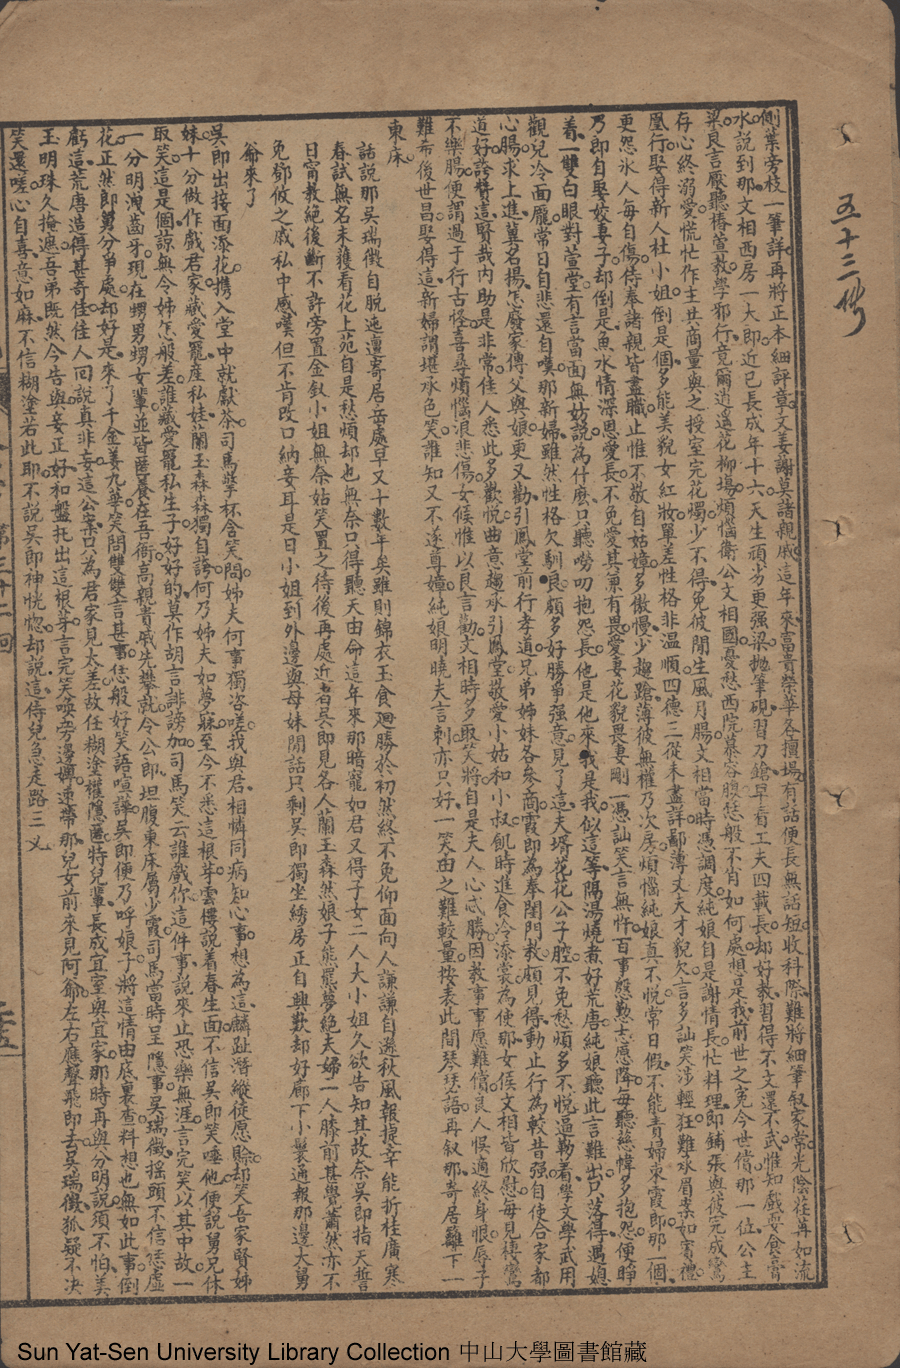 五十三
側葉旁枝一筆詳再將正本細評章文姜謝莫諸親戚這年來富貴榮華各擅場有話便長無話短收科際難將細筆叙家常光陰荏苒如流
水說到那文相西房一大郎近已長成年十六天生頑劣更强梁拋筆硯習刀鎗早看工夫四載長却好教習得不文還不武惟知戲耍食膏
粱良言厭聽椿萱教學邪行竟爾逍遙花柳塲煩惱衛公文相國憂愁西院慕容腹愁般不肖如何處想是我前世之冤今世償那一位公主
存心終溺愛慌忙作主共商量與之授室完花燭少不得免彼閒生風月腸文相當時憑調度純娘自是謝情長忙料理即鋪張與彼完成鸞
凰行娶得新人杜小姐倒是個多能美貌女紅妝單差性格非温順四德三從未盡詳鄙薄丈夫才貌欠言多訕笑涉輕狂難承眉案如賓禮
更怨氷人每自傷侍奉諸親皆盡職止惟不敬自姑嫜多傲慢少趨蹌薄彼無權乃次房煩惱純娘真不悅常日假不能責婦東霞郎那一個
乃即自娶姣妻子却倒是魚水情深恩愛長不免愛其兼有畏愛妻花貌畏妻剛一憑訕笑言無忤百事慇懃志愿降每聽慈幃多抱怨便睜
着一雙白眼對萱堂有言當面無姑說為什麽只聽嘮叨抱怨長他是他來我是我似這等隔湯燒煮好荒唐純娘聽此言難出口落得馮媳
觀兒冷面龐常日自悲還自嘆那新婦雖然性格欠馴良頗多好勝爭强意見了這夫壻花花公子腔不免愁煩多不悅逼勒着學文學武用
心腸求上進冀名揚怎廢家傳父與娘更又勸引鳳堂前行孝道兄弟姊妹各參商霞即為奉閨門教頗見得動止行為較昔强自使合家都
道好誇贊這賢哉內助是非常佳人悉此多歡悅曲意趨承引鳳堂敬愛小姑和小叔飢時進食冷添裳為使那女侯文相皆欣慰每見棲鸞
不樂腸便謂過于行古怪喜尋煩惱浪悲傷女侯惟以良言勸文相時多取笑將自是夫人心忒勝因教事事愿難償良人悮適終身恨辱子
難希後世昌娶得這新婦謂堪承色笑誰知又不遂尊嫜純娘明曉夫言刺亦只好一笑由之難較量按表此間琴瑟語再叙那寄居蘿下一
東床
話說那吳瑞徵自脫迍邅寄居岳處早又十數年矣雖則錦衣玉食廻勝於初然終不免仰面向人謙謙自遜秋風報捷幸能折桂廣寒
春試無名未獲看花上苑自是愁煩却也無奈只得聽天由命這年來那暗寵如君又得子女二人大小姐久欲告知其故奈吳即指天誓
日甯教絕後斷不許旁置金釵小姐無奈姑笑置之待後再處近者吳即見各人蘭玉森然娘子熊羆夢絕夫婦二人膝前甚覺蕭然亦不
免鄧攸之戚私中感嘆但不肯改口納妾耳是日小姐到外邊與母妹閒話只剩吳即獨坐綉房正自興歎却好廊下小鬟通報那邊大舅
爺來了
吳即出接面添花携入堂中就獻茶司馬擎杯含笑問姊夫何事獨咨嗟我與君相憐同病知心事想為這麟趾潛縱徒愿賒却笑吾家賢姊
妹十分做作戲君家藏愛寵產私娃蘭玉森森獨自誇何乃姊夫如夢寐至今不悉這根芽雲樗說着春生面不信吳即笑唾他便說舅兄休
取笑這是個諒無令姊怎般差誰藏愛寵私生子好好的莫作胡言誹謗加司馬笑云誰戲你這件事說來止恐樂無涯言完笑以其中故一
一分明洩齒牙現在甥男甥女輩並皆匿養在吾衙高親貴戚先攀就令公郎坦腹東床屬少霞司馬當時呈隱事吳瑞徵搖頭不信恁虛
花正然即舅分爭處却好是來了千金姜九華笑問雙雙言甚事恁般好笑語喧譁吳即便乃呼娘子將這情由底裏查料想也無如此事倒
虧這荒唐造得甚奇佳佳人回說真非妄這公案只為君家見太差故任糊塗權隱匿特兒輩長成宜室與宜家那時再與分明說須不怕美
玉明珠久掩遮吾弟既然今告與妾正好和盤托出這根芽言完天喚旁邊婢速帶那兒女前來見阿爺左右應聲飛即去吳瑞徵狐疑不决
笑還嗟心自喜意如麻不信糊塗若此耶不說吳即神恍惚却說這侍兒急走路三乂
第三十二回
Sun Yat-Sen University Library Collection 中山大學圖書館藏